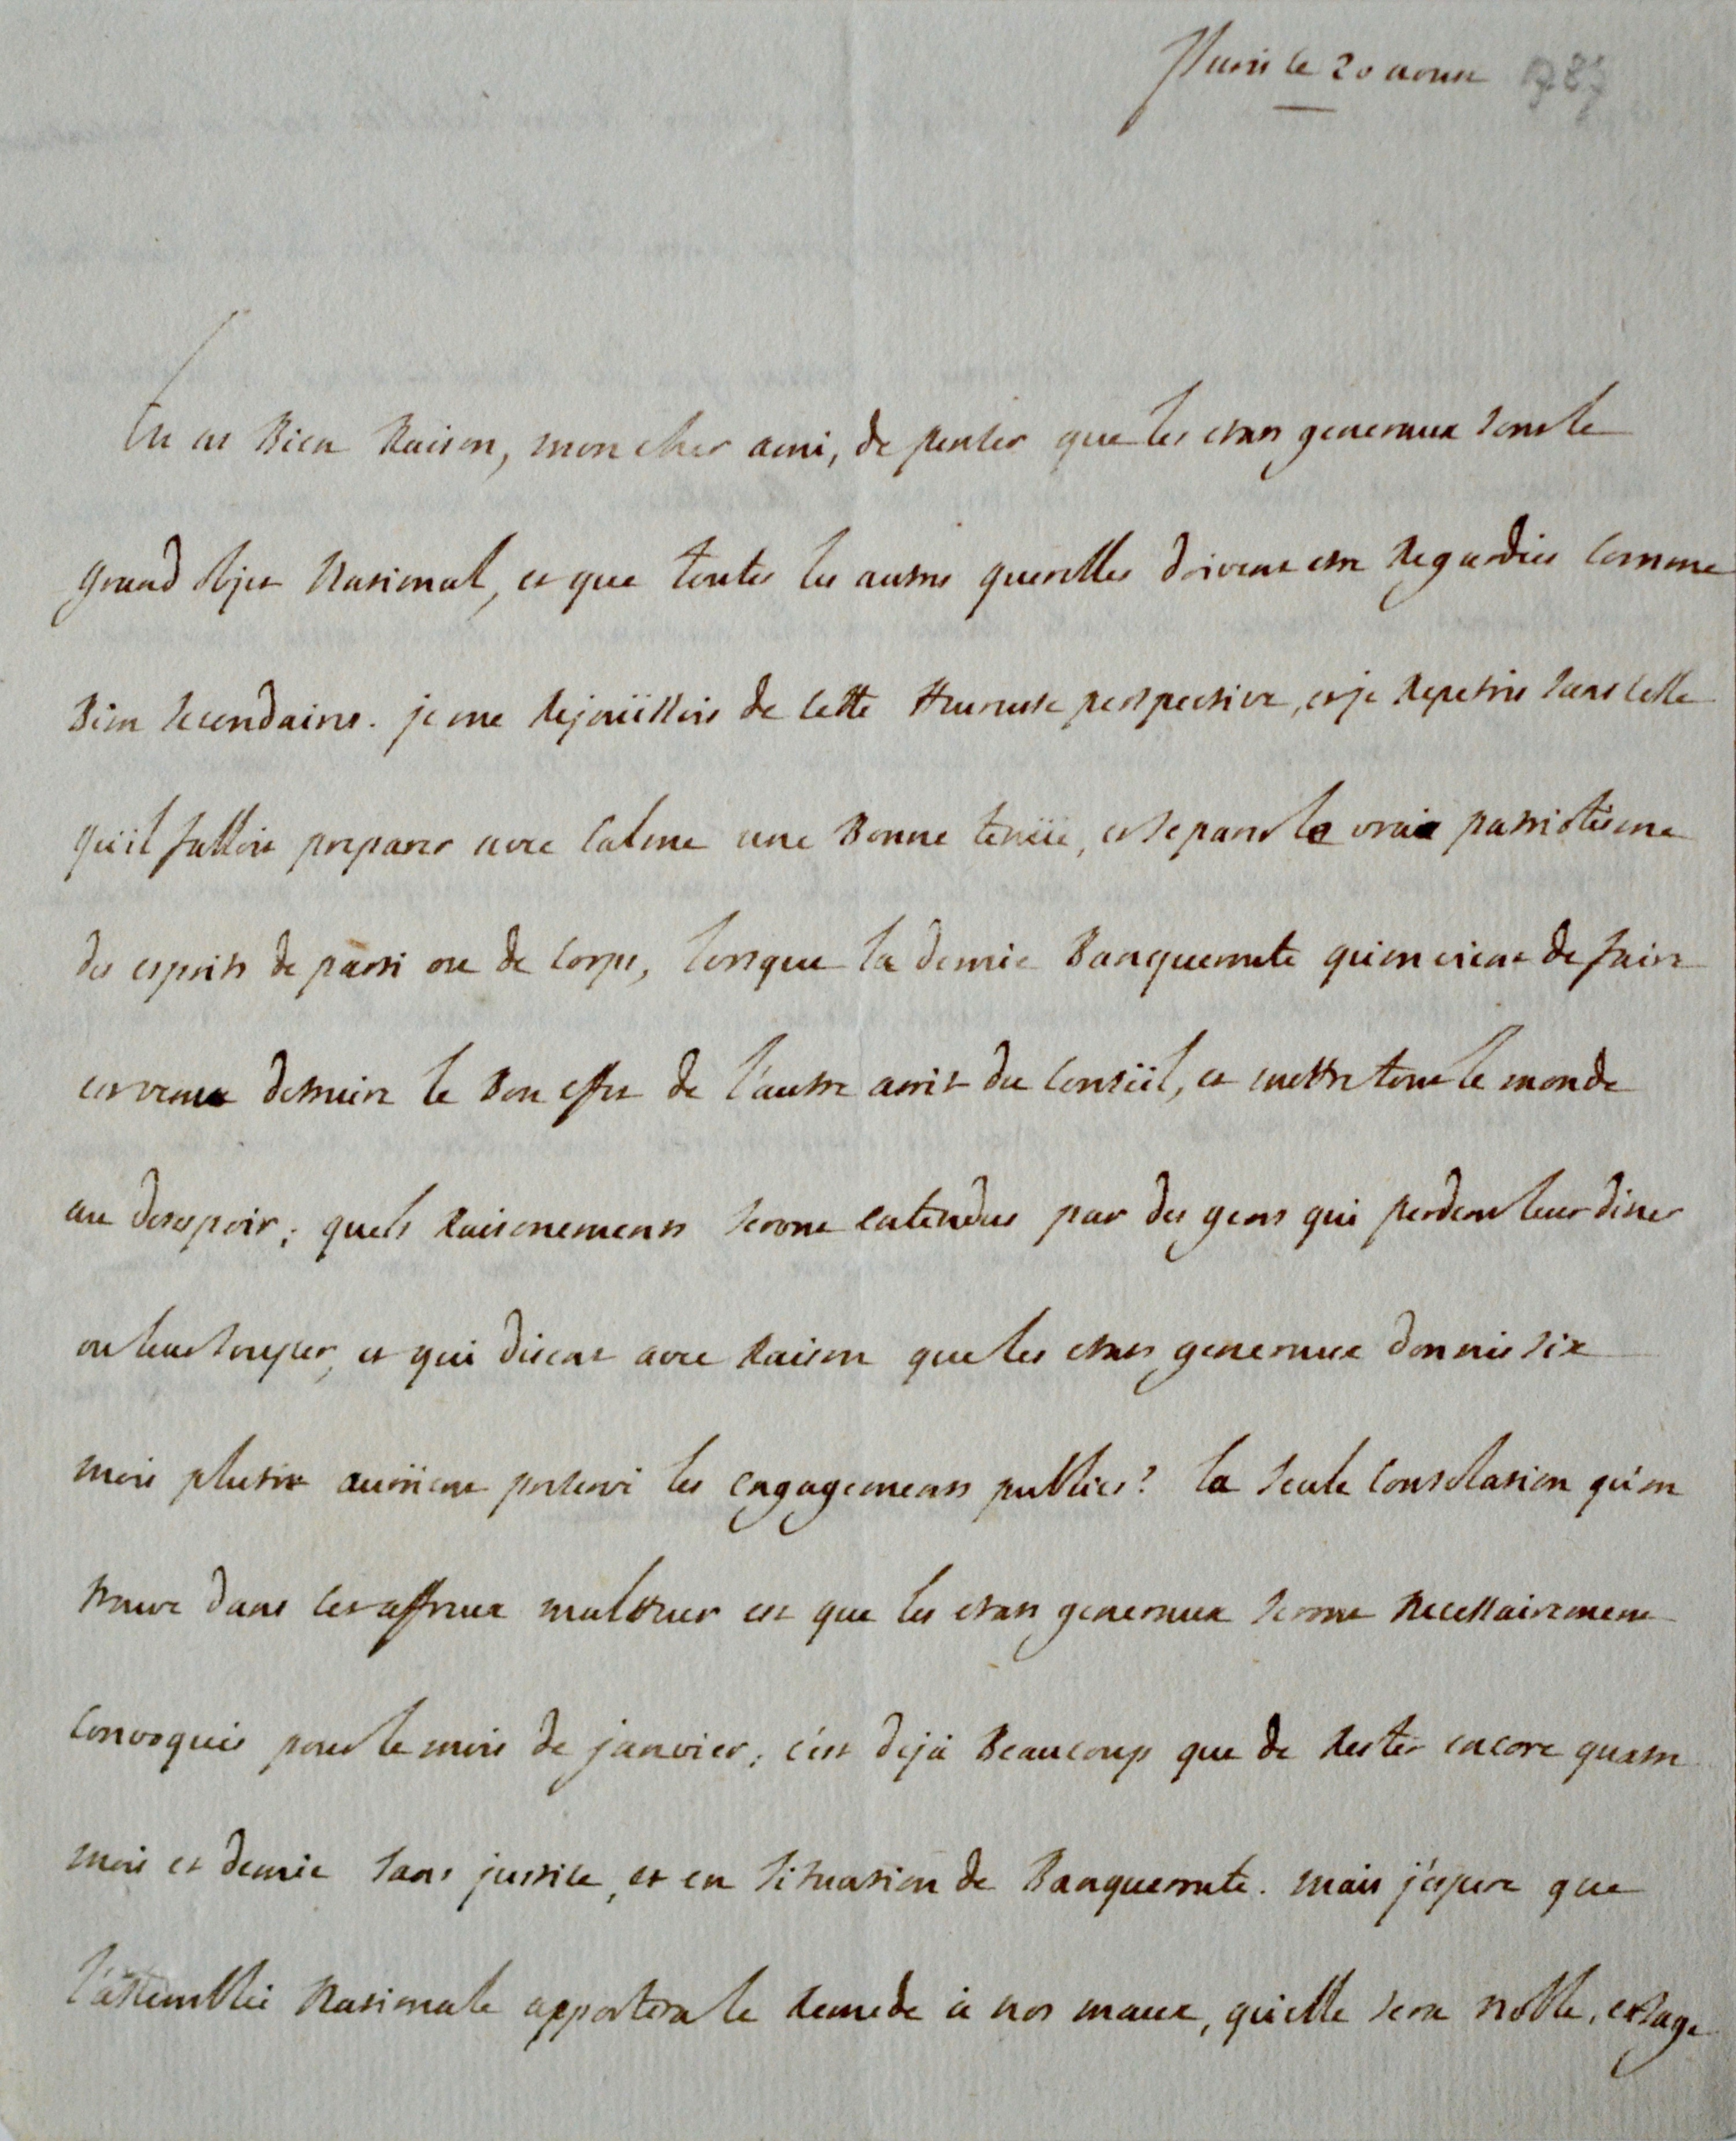 Paris le 20 aoust 1787
Tu as Bien Raison, mon cher ami, de penser que les etats generaux sont le
grand objet National, et que toutes les autres querelles doivent etre Regardées comme
Bien secondaires. je me Rejouïssois de cette Heureuse perspective, et je Repetois sans cesse
qu'il falloit preparer avec calme une Bonne tenüe, et separer le vrai patriotisme
des esprits de parti ou de corps, lorsque la demie Banqueroute qu'on vient de faire
est venue detruire le Bon effet de l'autre arret du conseil, et mettre tout le monde
au desespoir; quels Raisonements seront entendus par des gens qui perdent leur diner
ou leur souper, et qui disent avec Raison que les etats generaux donnés six
mois plutot auroient preservé les engagements publics? la seule consolation qu'on
trouve dans cet affreux malheur est que les etats generaux seront Necessairement
convoqués pour le mois de janvier; c'est deja Beaucoup que de Rester encore quatre
mois et demie sans justice, et en situation de Banqueroute. mais j'espere que
l'assemblée Nationale apportera le Remede à nos maux, qu'elle sera noble, et sage